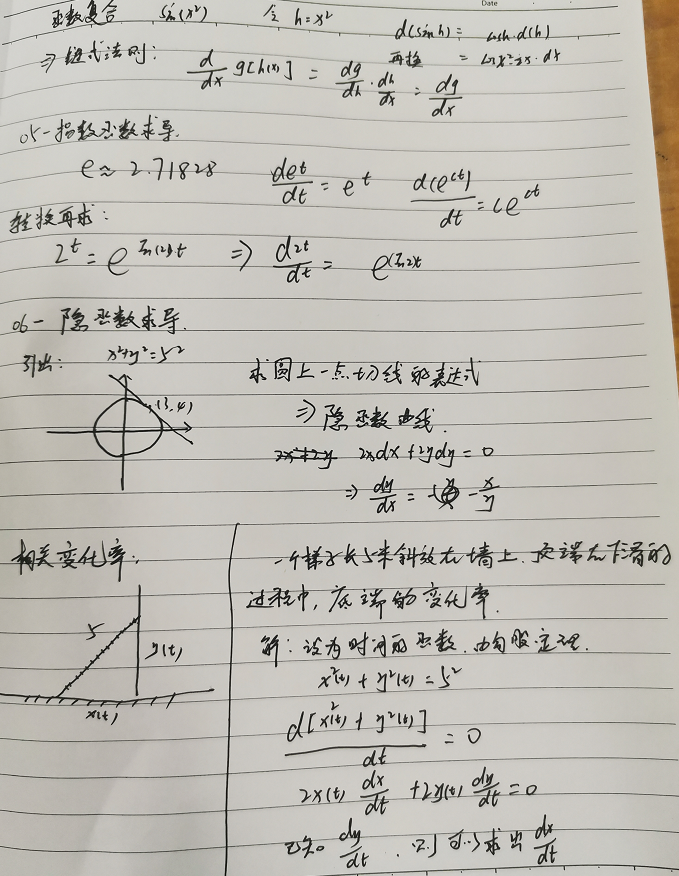 Date
函数复合 sin(x²) 令 h=x² d(sinh)= cosh·d(h)
⇒ 链式法则: d/dx g[h(x)] = dg/dh · dh/dx = dg/dx 再换 = cosx²·2x·dx
05-指数函数求导.
e≈2.71828 de^t/dt = e^t d(e^ct)/dt = ce^ct
转换再求:
2^t = e^ln(2)t ⇒ d2^t/dt = e^(ln2)t
06-隐函数求导.
引出: x²+y²=5² 求圆上一点切线的表达式
(3,4) ⇒ 隐函数曲线.
2xdx+2ydy=0
⇒ dy/dx = -x/y
相关变化率:
5 y(t)
x(t)
一个梯子长5米斜放在墙上.顶端在下滑的
过程中,底端的变化率.
解:设为时间的函数.由勾股定理.
x²(t)+y²(t)=5²
d[x²(t)+y²(t)]/dt = 0
2x(t) dx/dt +2y(t) dy/dt =0
已知 dy/dt .则可以求出 dx/dt